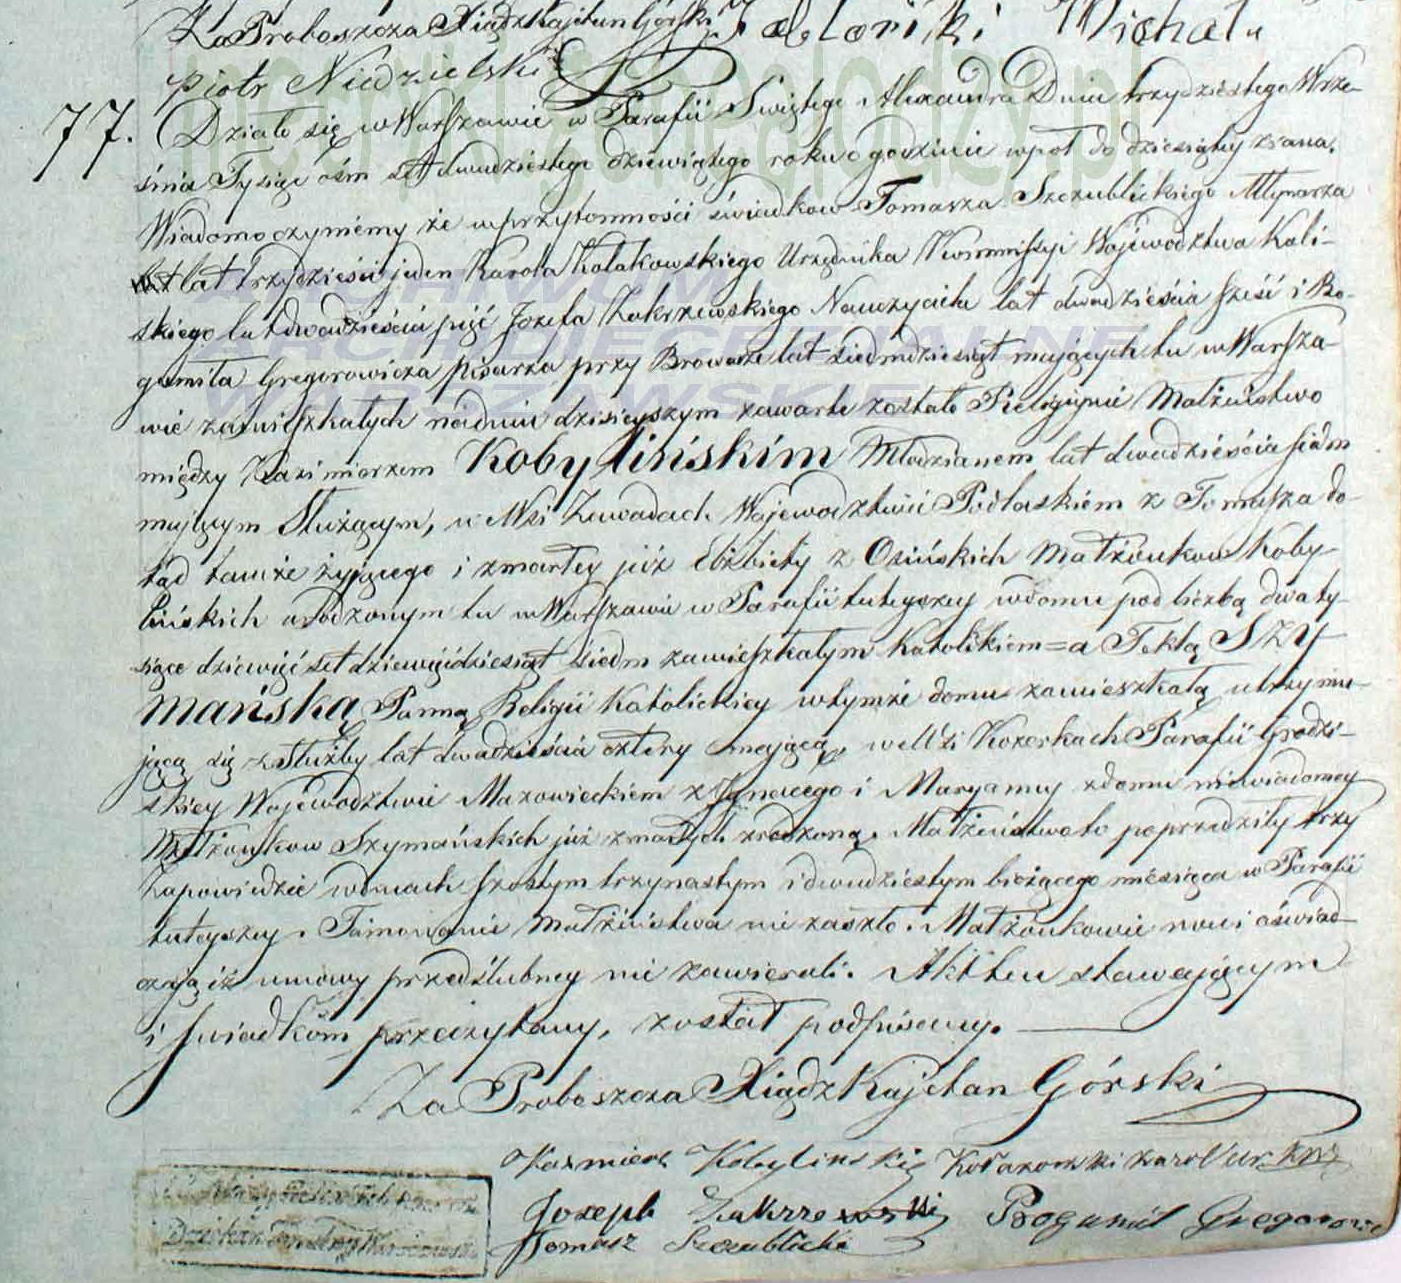 Za Proboszcza Xiądz Kajetan Górski Michał
Piotr Niedzielski
77. Działo się w Warszawie w Parafii Swiętego Alexandra Dnia trzydziestego Wrze-
śnia Tysiąc ośm set dwudziestego dziewiątego roku o godzinie wpoł do dziesiątey zrana.
Wiadomo czyniemy że w przytomności świadkow Tomasza Szczublickiego Młynarza
lat trzydzieści jeden Karola Kołakowskiego Urzędnika Kommissyi Wojewodztwa Kali-
skiego lat dwadzieścia pięć Jozefa Zakrzewskiego Nauczyciela lat dwadzieścia sześć i Bo-
gumiła Gregorowicza pisarza przy Browarze lat siedmdziesiąt mających tu w Warsza-
wie zamieszkałych na dniu dzisieyszym zawarte zostało Religijnie Małżeństwo
między Kazimierzem Kobylińskim Młodzianem lat dwadzieścia siedm
mającym Służącym, w Wsi Zawadach Wojewodztwie Podlaskiem z Tomasza do-
tąd tamże żyjącego i zmarłey już Elżbiety z Osińskich Małżonkow Koby-
lińskich urodzonym tu w Warszawie w Parafii tuteyszey w domu pod liczbą dwa ty-
siące dziewięć set dziewięćdziesiąt siedm zamieszkałym Katolikiem = a Teklą Szy
mańską Panną Religii Katolickiey w tymże domu zamieszkałą utrzymu-
jącą się z Służby lat dwadzieścia cztery mającą, w Wsi Kozerkach Parafii Grodzi-
skiey Wojewodztwie Mazowieckiem z Jgnacego i Maryanny z domu niewiadomey
Małżonkow Szymańskich już zmarłych zrodzoną. Małżeństwo to poprzedziły trzy
Zapowiedzie w dniach szostym trzynastym i dwudziestym bieżącego miesiąca w Parafii
tuteyszey. Tamowanie Małżeństwa nie zaszło. Małżonkowie nowi oświad-
czają iż umowy przedślubney nie zawierali. Akt ten stawającym
i świadkom przeczytany, został podpisany.
Za Proboszcza Xiądz Kajetan Górski
Kazmierz Kobylinski Kołakowski Karol
Jozeph Zakrzewski Bogumił Gregorowicz
Tomasz Szczublicki
ARCHIWUM
ARCHIDIECEZJALNE
WARSZAWSKIE